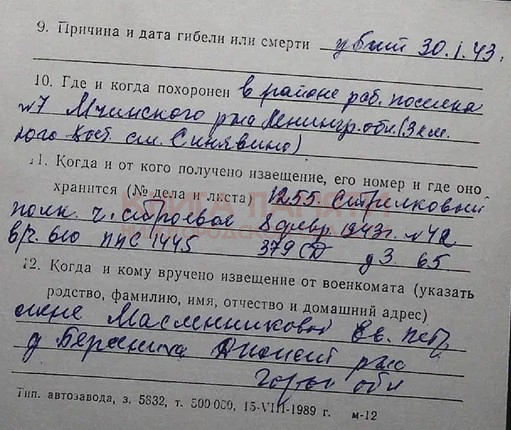 9. Причина и дата гибели или смерти убит 30.1.43.
10. Где и когда похоронен в районе раб. поселка
№7 Мгинского р-на Ленингр. обл. (3 км.
ст. Синявино)
11. Когда и от кого получено извещение, его номер и где оно
хранится (№ дела и листа) 1255 Стрелковый
полк ч. строевая 8 февр. 1943 г. №42
ППС 1445 379 СД д 3. 65
12. Когда и кому вручено извещение от военкомата (указать
родство, фамилию, имя, отчество и домашний адрес)
жене Масленниковой Ев. Петр.
д
обл
Тип. автозавода, з. 5832, т. 500 000, 15-VIII-1989 г. м-12
КНИГА ПАМЯТИ